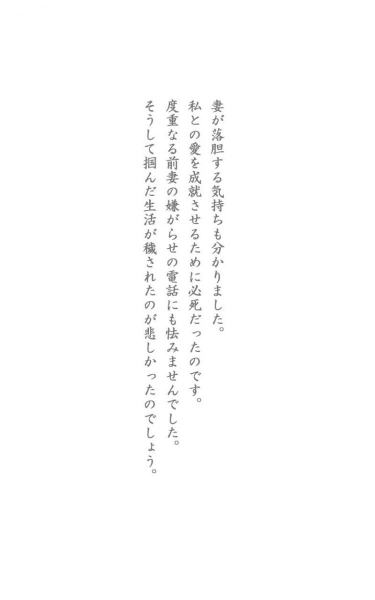 妻が落胆する気持ちも分かりました。
私との愛を成就させるために必死だったのです。
度重なる前妻の嫌がらせの電話にも怯みませんでした。
そうして掴んだ生活が穢されたのが悲しかったのでしょう。